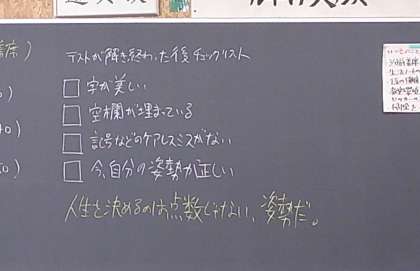 テストが解き終わった後チェックリスト
字が美しい
空欄が埋まっている
記号などのケアレスミスがない
今、自分の姿勢が正しい
人生を決めるのは点数じゃない、姿勢だ。